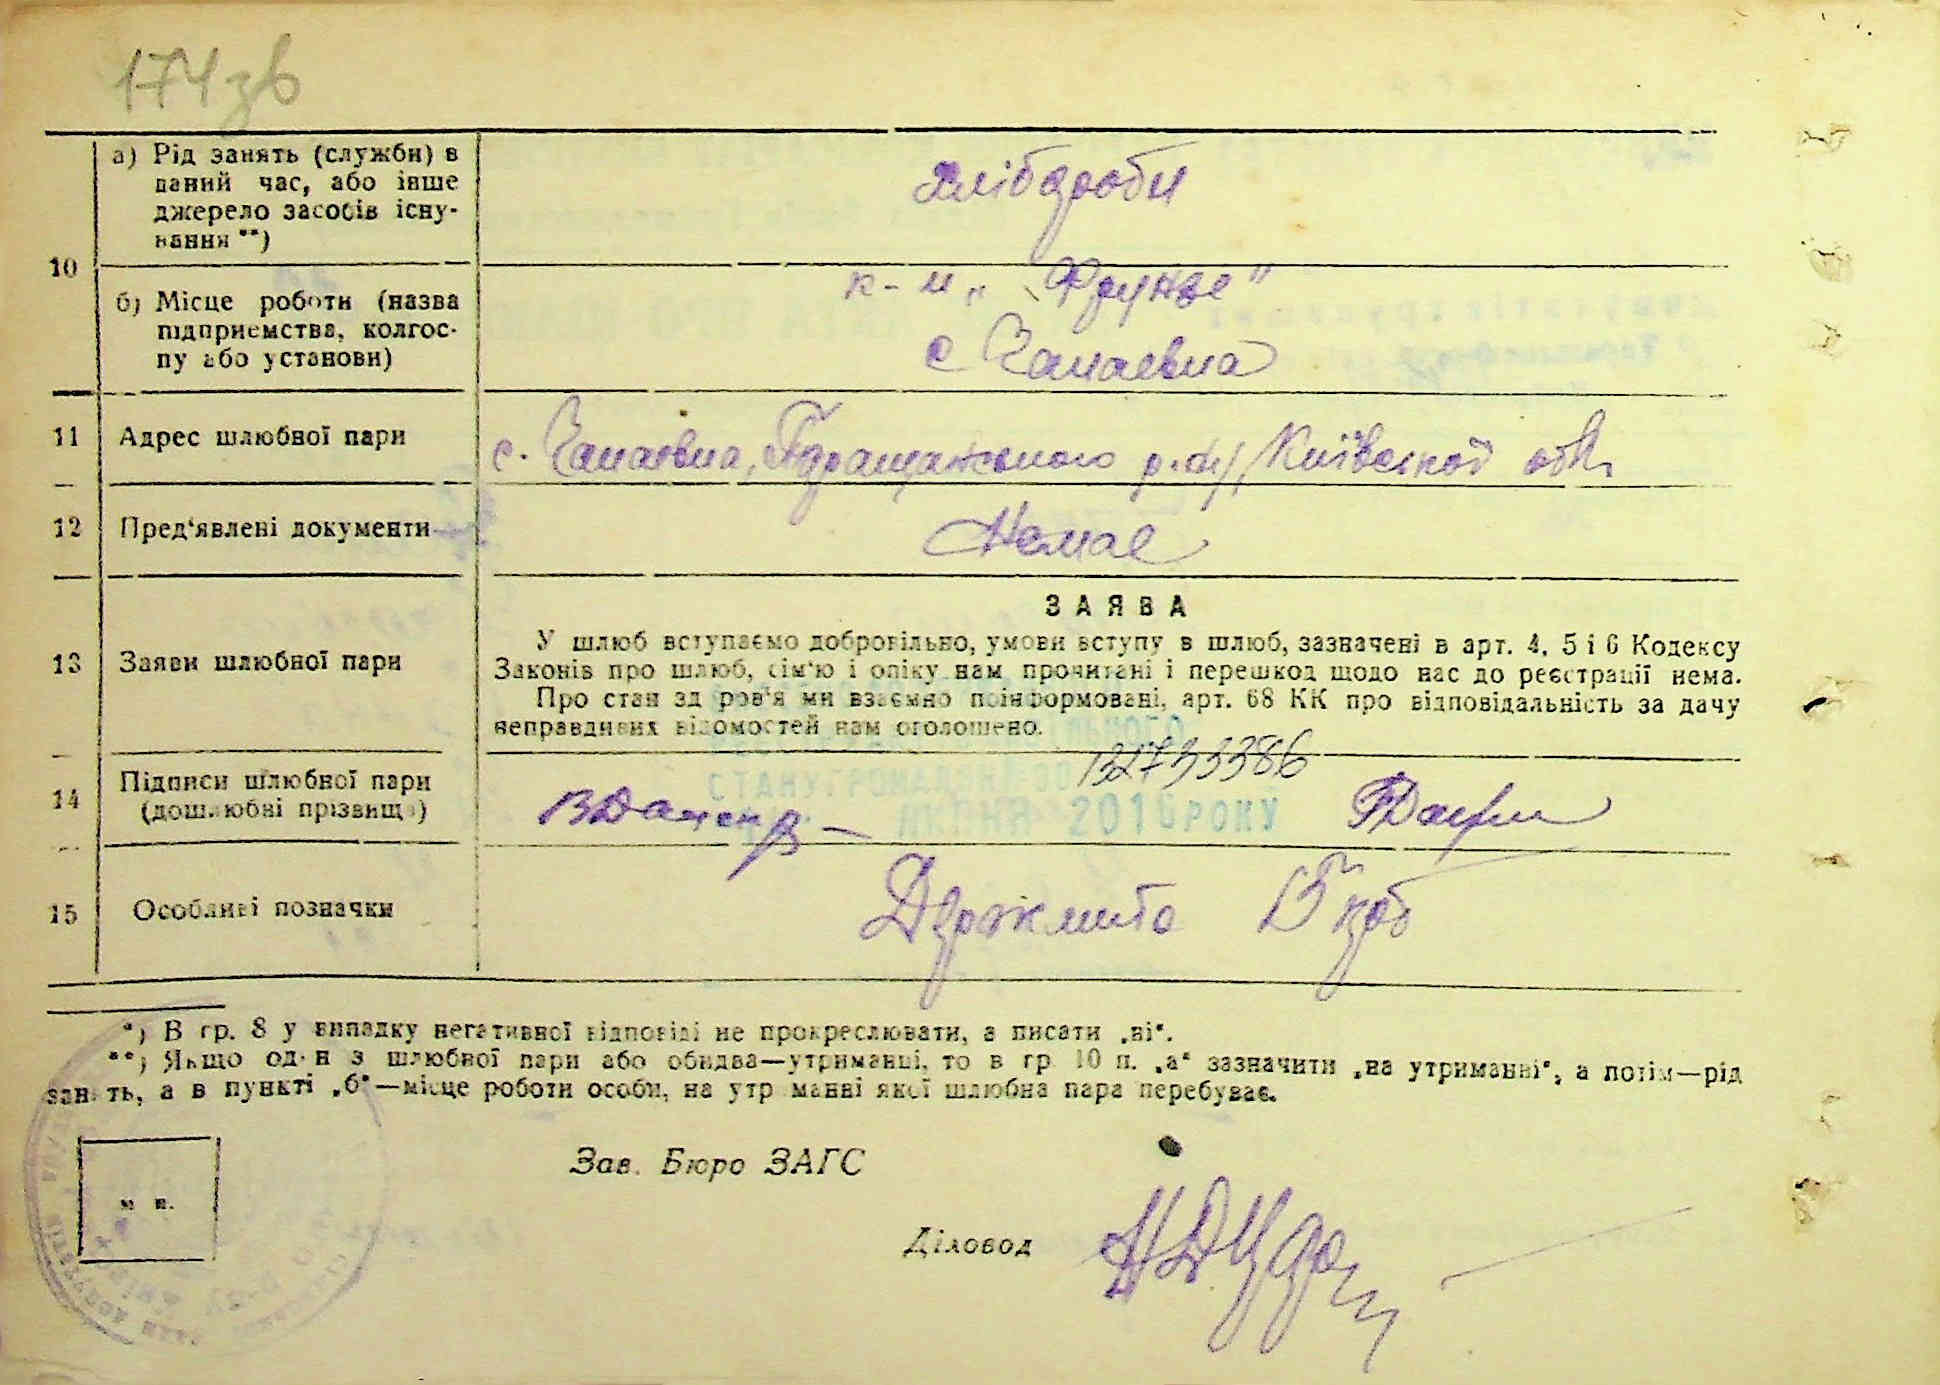 174 зв
10
а) Рід занять (служби) в
даний час, або інше
джерело засобів існу-
вання **)
хлібороби
б) Місце роботи (назва
підприємства, колгос-
пу або установи)
к-п „Фрунзе"
с Чапаевка
11 Адрес шлюбної пари
с. Чапаевка, Таращанського р.ну, Київської обл.
12 Пред'явлені документи
Немає
13 Заяви шлюбної пари
ЗАЯВА
У шлюб вступаємо добровільно, умови вступу в шлюб, зазначені в арт. 4, 5 і 6 Кодексу
Законів про шлюб, сім'ю і опіку нам прочитані і перешкод щодо нас до реєстрації нема.
Про стан здоров'я ми взаємно поінформовані, арт. 68 КК про відповідальність за дачу
неправдивих відомостей нам оголошено.
14 Підписи шлюбної пари
(дошлюбні прізвища)
132733386
2016 РОКУ
15 Особливі позначки
Держмито 15 крб
*) В гр. 8 у випадку негативної відповіді не прокреслювати, а писати „ні".
**) Якщо один з шлюбної пари або обидва—утриманці, то в гр 10 п. „а" зазначити „на утриманні", а потім—рід
занять, а в пункті „б"—місце роботи особи, на утриманні якої шлюбна пара перебуває.
м п.
Зав. Бюро ЗАГС
Діловод